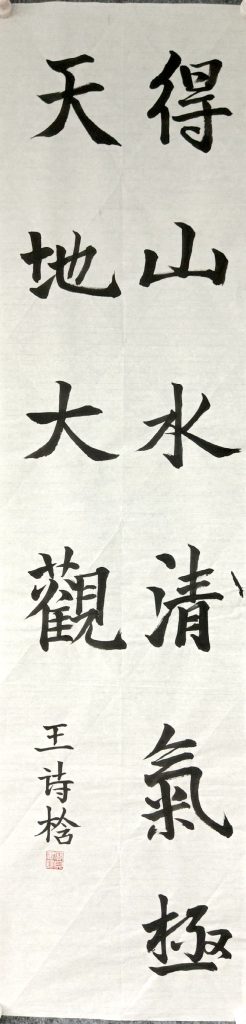 得山水清氣極
天地大觀
王诗捨